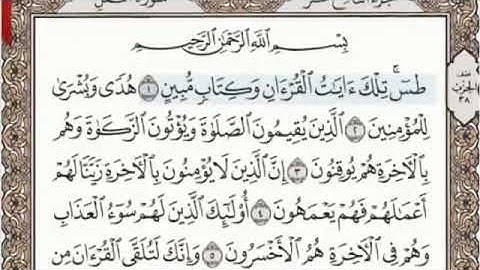 بِسْمِ ٱللَّهِ ٱلرَّحْمَٰنِ ٱلرَّحِيمِ
طسٓ ۚ تِلْكَ ءَايَٰتُ ٱلْقُرْءَانِ وَكِتَابٍ مُّبِينٍ ١ هُدًى وَبُشْرَىٰ
لِلْمُؤْمِنِينَ ٢ ٱلَّذِينَ يُقِيمُونَ ٱلصَّلَوٰةَ وَيُؤْتُونَ ٱلزَّكَوٰةَ وَهُم
بِٱلْـَٔاخِرَةِ هُمْ يُوقِنُونَ ٣ إِنَّ ٱلَّذِينَ لَا يُؤْمِنُونَ بِٱلْـَٔاخِرَةِ زَيَّنَّا لَهُمْ
أَعْمَٰلَهُمْ فَهُمْ يَعْمَهُونَ ٤ أُو۟لَٰٓئِكَ ٱلَّذِينَ لَهُمْ سُوٓءُ ٱلْعَذَابِ
وَهُمْ فِى ٱلْـَٔاخِرَةِ هُمُ ٱلْأَخْسَرُونَ ٥ وَإِنَّكَ لَتُلَقَّى ٱلْقُرْءَانَ مِن
الحزب
٣٨